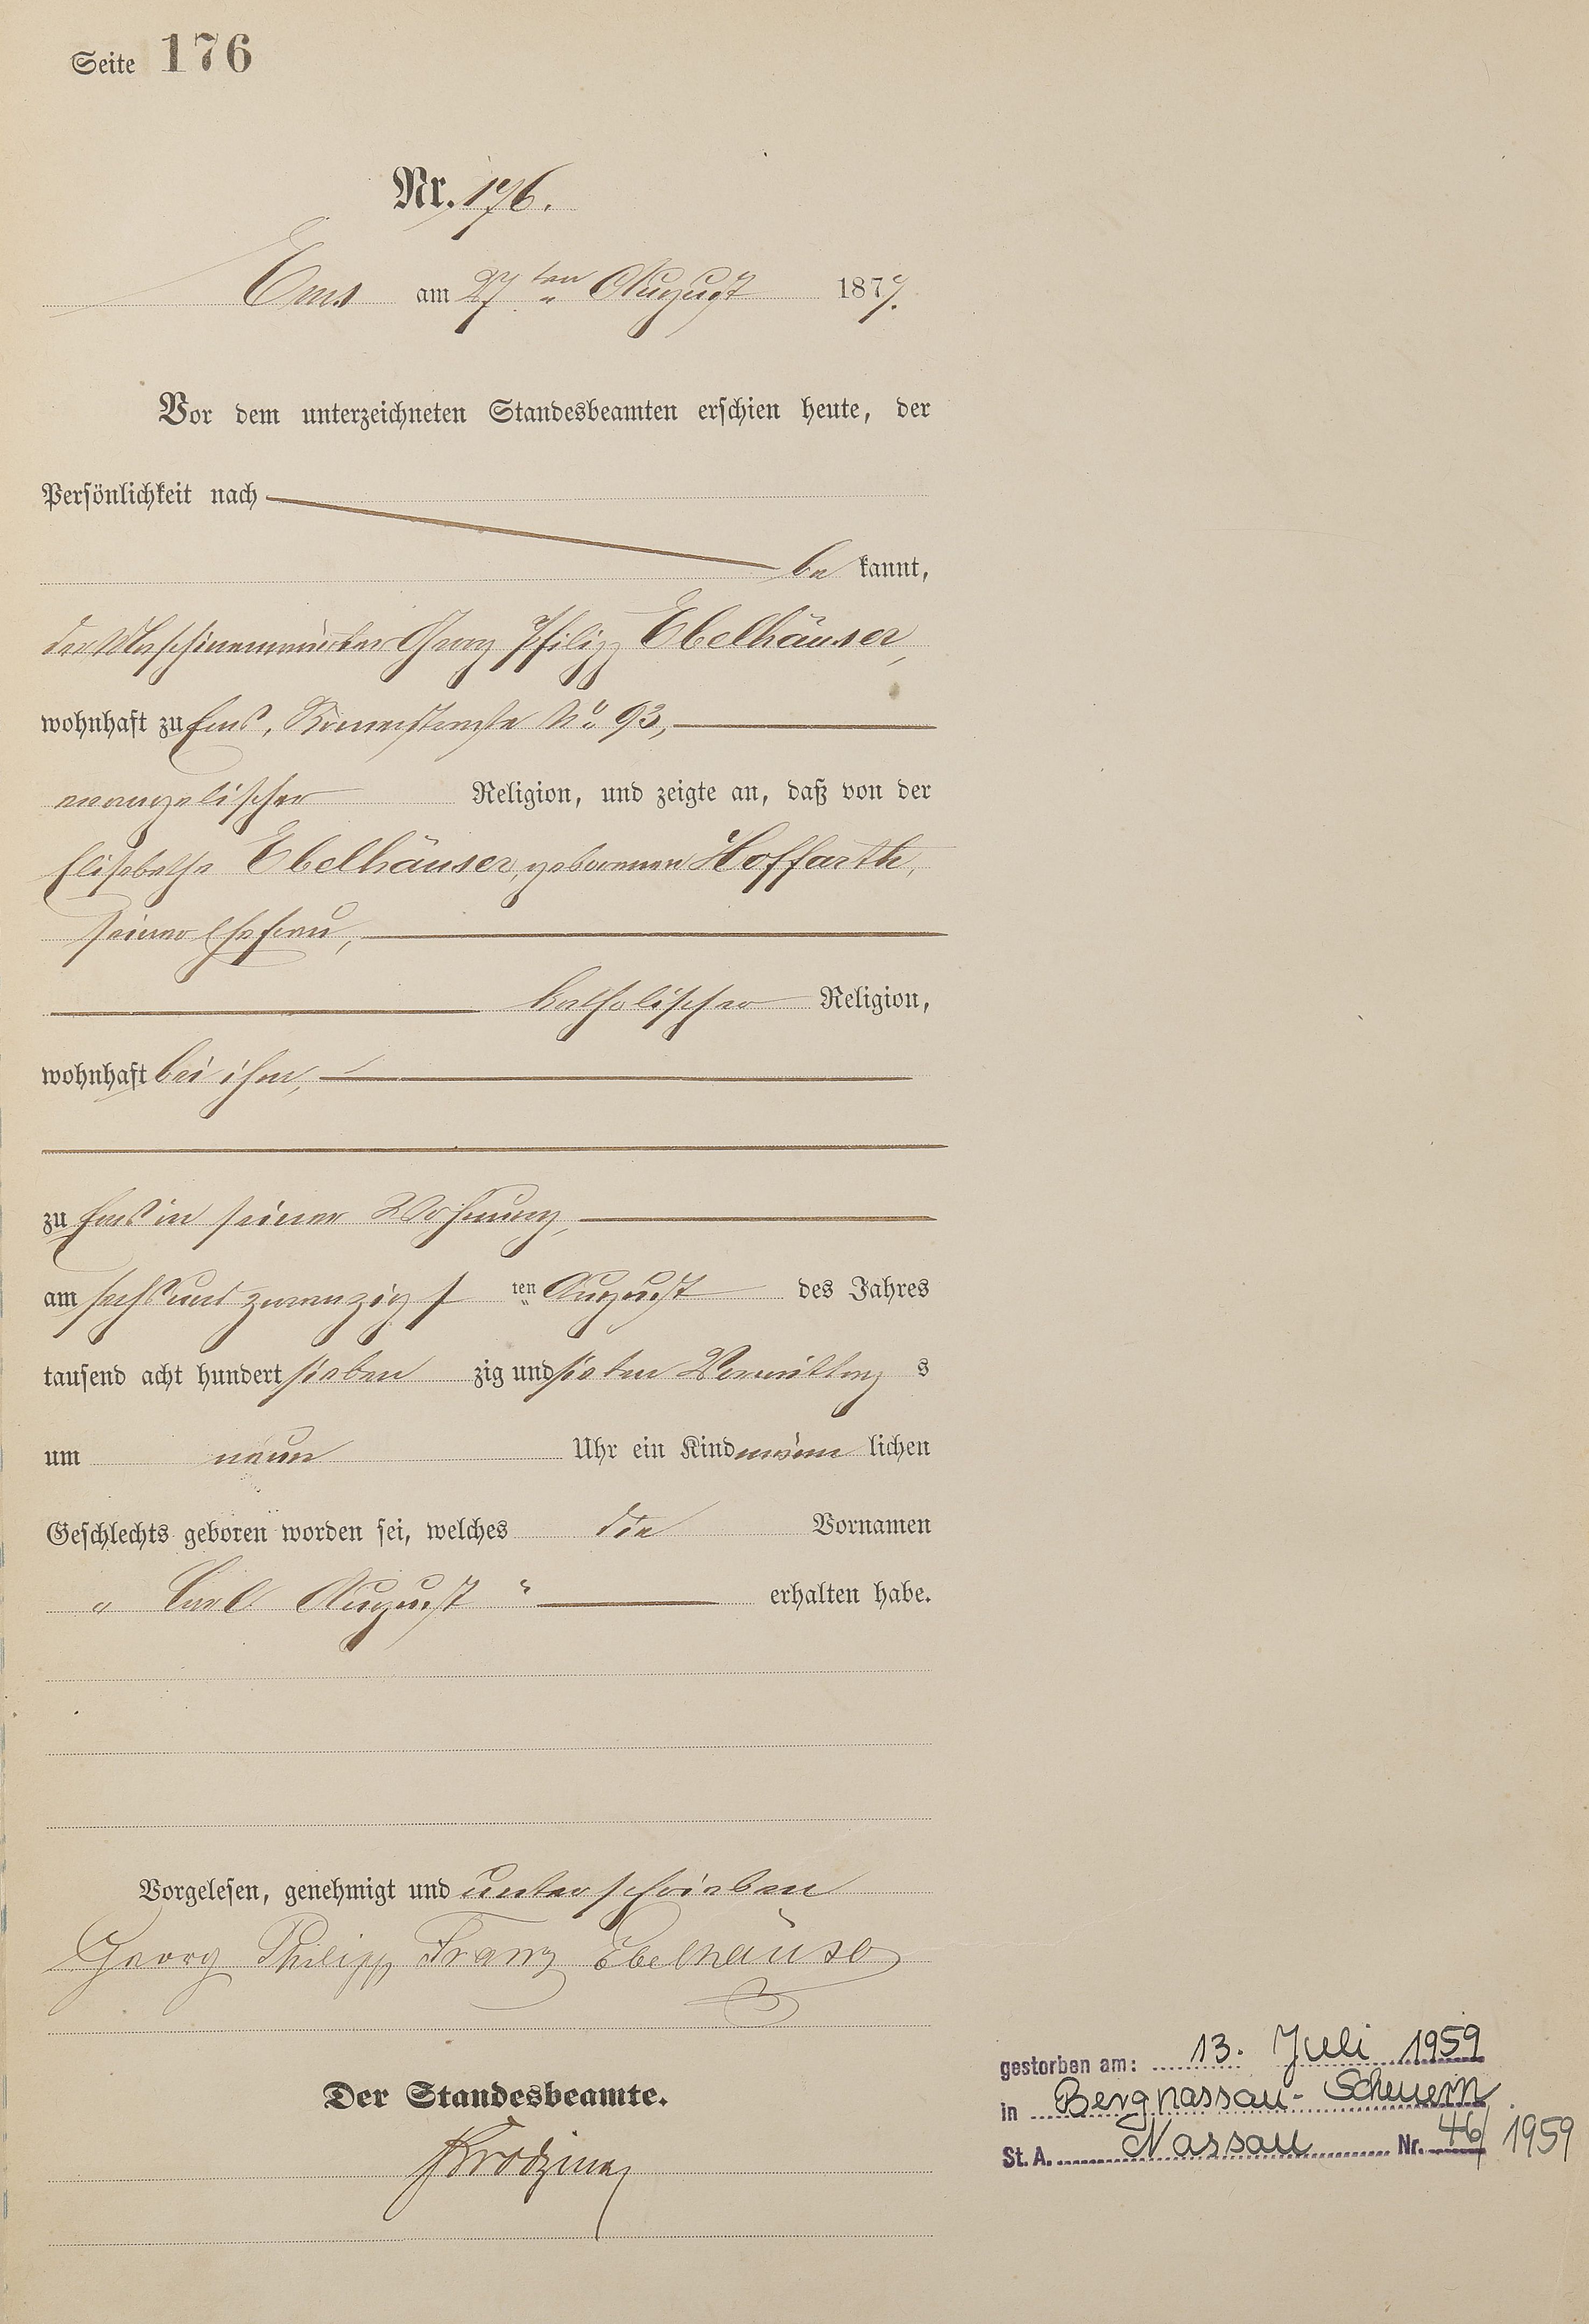 Seite 176
Nr. 176.
Ems am 27ten August 1877.
Vor dem unterzeichneten Standesbeamten erschien heute, der
Persönlichkeit nach
be kannt,
der Georg Philipp Ebelhäuser,
wohnhaft zu Ems, Römerstraße No 93,
evangelischer Religion, und zeigte an, daß von der
Elisabethe Ebelhäuser, geborenen Hoffarth,
seiner Ehefrau,
katholischer Religion,
wohnhaft bei ihm,
zu Ems in seiner Wohnung,
am sechs und zwanzigs ten August des Jahres
tausend acht hundert sieben zig und sieben Vormittag s
um neun Uhr ein Kind männ lichen
Geschlechts geboren worden sei, welches die Vornamen
„ Carl August “ erhalten habe.
Vorgelesen, genehmigt und unterschrieben
Georg Philipp Franz Ebelhäuser
Der Standesbeamte.
gestorben am: 13. Juli 1959
in Bergnassau-Scheuern
St. A. Nassau Nr. 46/1959